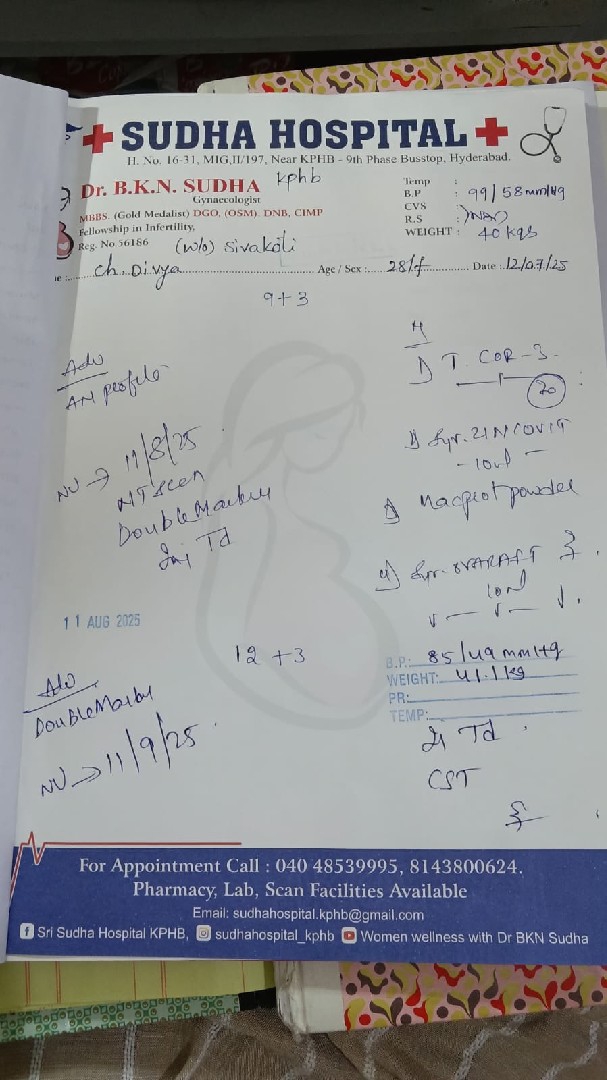 SUDHA HOSPITAL
H. No. 16-31, MIG,II/197, Near KPHB - 9th Phase Busstop, Hyderabad.
Dr. B.K.N. SUDHA
kphb
Gynaecologist
MBBS. (Gold Medalist) DGO, (OSM). DNB, CIMP
Fellowship in Infertility,
Reg. No 56186
(w/o) Sivakoti
Temp :
B.P : 99/58 mm/Hg
CVS :
R.S :
WEIGHT : 40 kgs
Ch. Divya Age / Sex : 28/f Date : 12/07/25
9+3
Adv
AN profile
NV → 11/8/25
NT Scan
Double Marker
Inj Td
1) T. COR-3
30
Syr. ZINCOVIT
10ml
powder
4) Syr.
10ml
11 AUG 2025
12 +3
B.P.: 85/49 mmHg
WEIGHT: 41.1 kg
PR:
TEMP:
Adv
Double Marker
NV → 11/9/25
Inj Td
CST
For Appointment Call : 040 48539995, 8143800624.
Pharmacy, Lab, Scan Facilities Available
Email: sudhahospital.kphb@gmail.com
Sri Sudha Hospital KPHB, sudhahospital_kphb Women wellness with Dr BKN Sudha